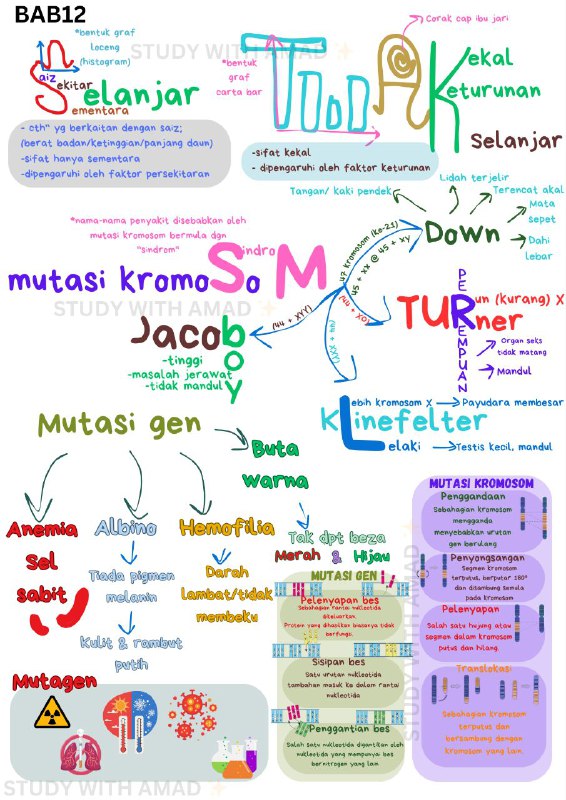 BAB12
STUDY WITH AMAD
*bentuk graf
loceng
(histogram)
Saiz
Sekitar
Selanjar
Sementara
- cth" yg berkaitan dengan saiz;
(berat badan/ketinggian/panjang daun)
-sifat hanya sementara
-dipengaruhi oleh faktor persekitaran
*bentuk
graf
carta bar
Corak cap ibu jari
Kekal
Keturunan
Selanjar
-sifat kekal
- dipengaruhi oleh faktor keturunan
*nama-nama penyakit disebabkan oleh
mutasi kromosom bermula dgn
"sindrom"
SindroM
mutasi kromoSo
STUDY WITH AMAD
47 kromosom (ko-21)
45 + XX @ 45 + XY
Down
Tangan/ kaki pendek
Lidah terjelir
Terencat akal
Mata
sepet
Dahi
lebar
(44 + XO)
TURner
un (kurang) X
PEREMPUAN
Organ seks
tidak matang
Mandul
(44 + XYY)
Jacob
boy
-tinggi
-masalah jerawat
-tidak mandul
(44 + XXY)
KLinefelter
Lebih kromosom X
Payudara membesar
Lelaki
Testis kecil, mandul
Mutasi gen
Anemia
Sel
sabit
Albino
Tiada pigmen
melanin
Kulit & rambut
putih
Hemofilia
Darah
lambat/tidak
membeku
Buta
warna
Tak dpt beza
Merah & Hijau
Mutagen
MUTASI GEN
Pelenyapan bes
Sebahagian rantai nukleotida
dikeluarkan.
Protein yang dihasilkan biasanya tidak
berfungsi.
Sisipan bes
Satu urutan nukleotida
tambahan masuk ke dalam rantai
nukleotida
Penggantian bes
Salah satu nukleotida digantikan oleh
nukleotida yang mempunyai bes
bernitrogen yang lain
MUTASI KROMOSOM
Penggandaan
Sebahagian kromosom
mengganda
menyebabkan urutan
gen berulang
Penyongsangan
Segmen kromosom
terputus, berputar 180°
dan disambung semula
pada kromosom
Pelenyapan
Salah satu hujung atau
segmen dalam kromosom
putus dan hilang.
Translokasi
Sebahagian kromosom
terputus dan
bersambung dengan
kromosom yang lain.
STUDY WITH AMAD
STUDY WITH AMAD